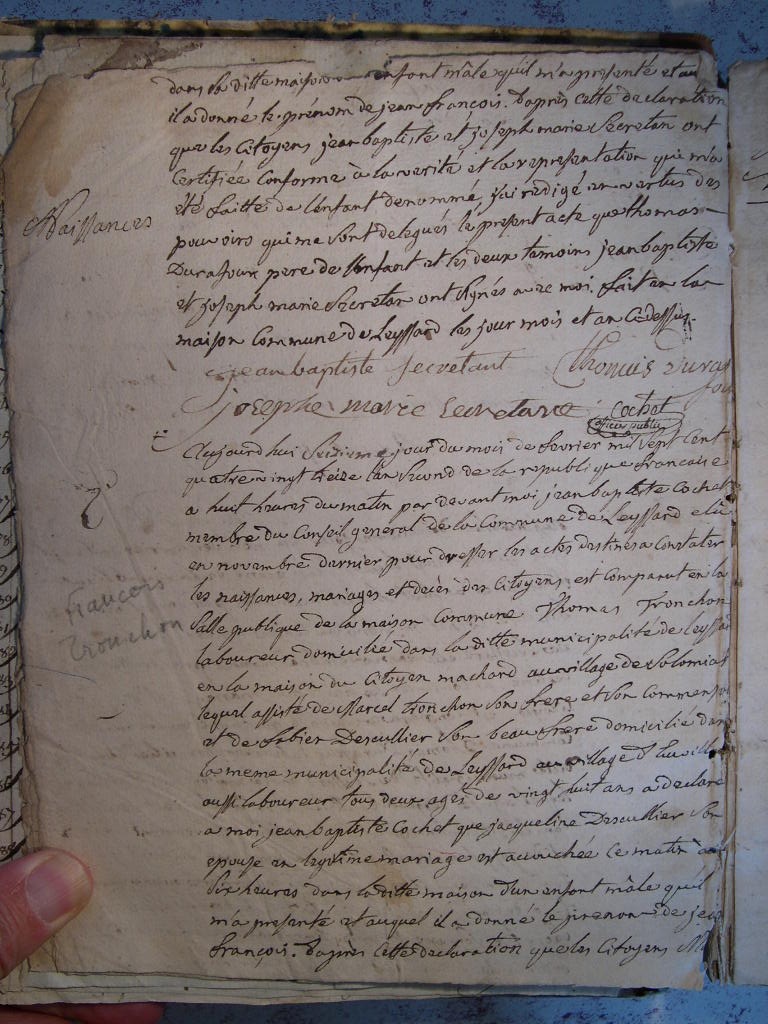 dans la ditte maison enfant mâle quil m'a presenté et au
il a donné le prénom de jean françois. Daprès cette declaration
que les Citoyens jean baptiste et joseph marie Secretan ont
Certifiée Conforme à la verité et la representation qui m'a
été faitte de lenfant denommé, j'ai redigé en vertus des
Naissances
pouvoirs qui me sont delegués le present acte que thomas
Durafour pere de l'enfant et les deux temoins jean baptiste
et joseph marie Secretan ont signés avec moi. fait en la
maison Commune de Leyssard les jour mois et an Cidessus.
jean baptiste secretant Thomas Durafour
josephe marie secretant Cochet
officier public
Aujourdhui Seizieme jour du mois de fevrier mil sept Cent
quatre vingt treize l'an second de la republique francaise
a huit heures du matin par devant moi jean baptiste Cochet
membre du Conseil general de la Commune de Leyssard elu
en novembre dernier pour dresser les actes destinés a Constater
les naissances, mariages et decès des Citoyens est Comparut en la
francois
Tronchon
Salle publique de la maison Commune Thomas Tronchon
laboureur domicilié dans la ditte municipalité de Leyssard
en la maison du Citoyen machard au village de Solomiat
lequel assisté de Marcel Tronchon son frere et son Commensal
et de fabien Descullier son beau frere domicilié dans
la meme municipalité de Leyssard au village
aussi laboureur tous deux agés de vingt huit ans a declaré
a moi jean baptiste Cochet que jacqueline Descullier son
epouse en legitime mariage est acouchée Ce matin a
Six heures dans la ditte maison d'un enfant mâle qu'il
m'a presenté et auquel il a donné le prenom de jean
françois. Daprès Cette declaration que les Citoyens